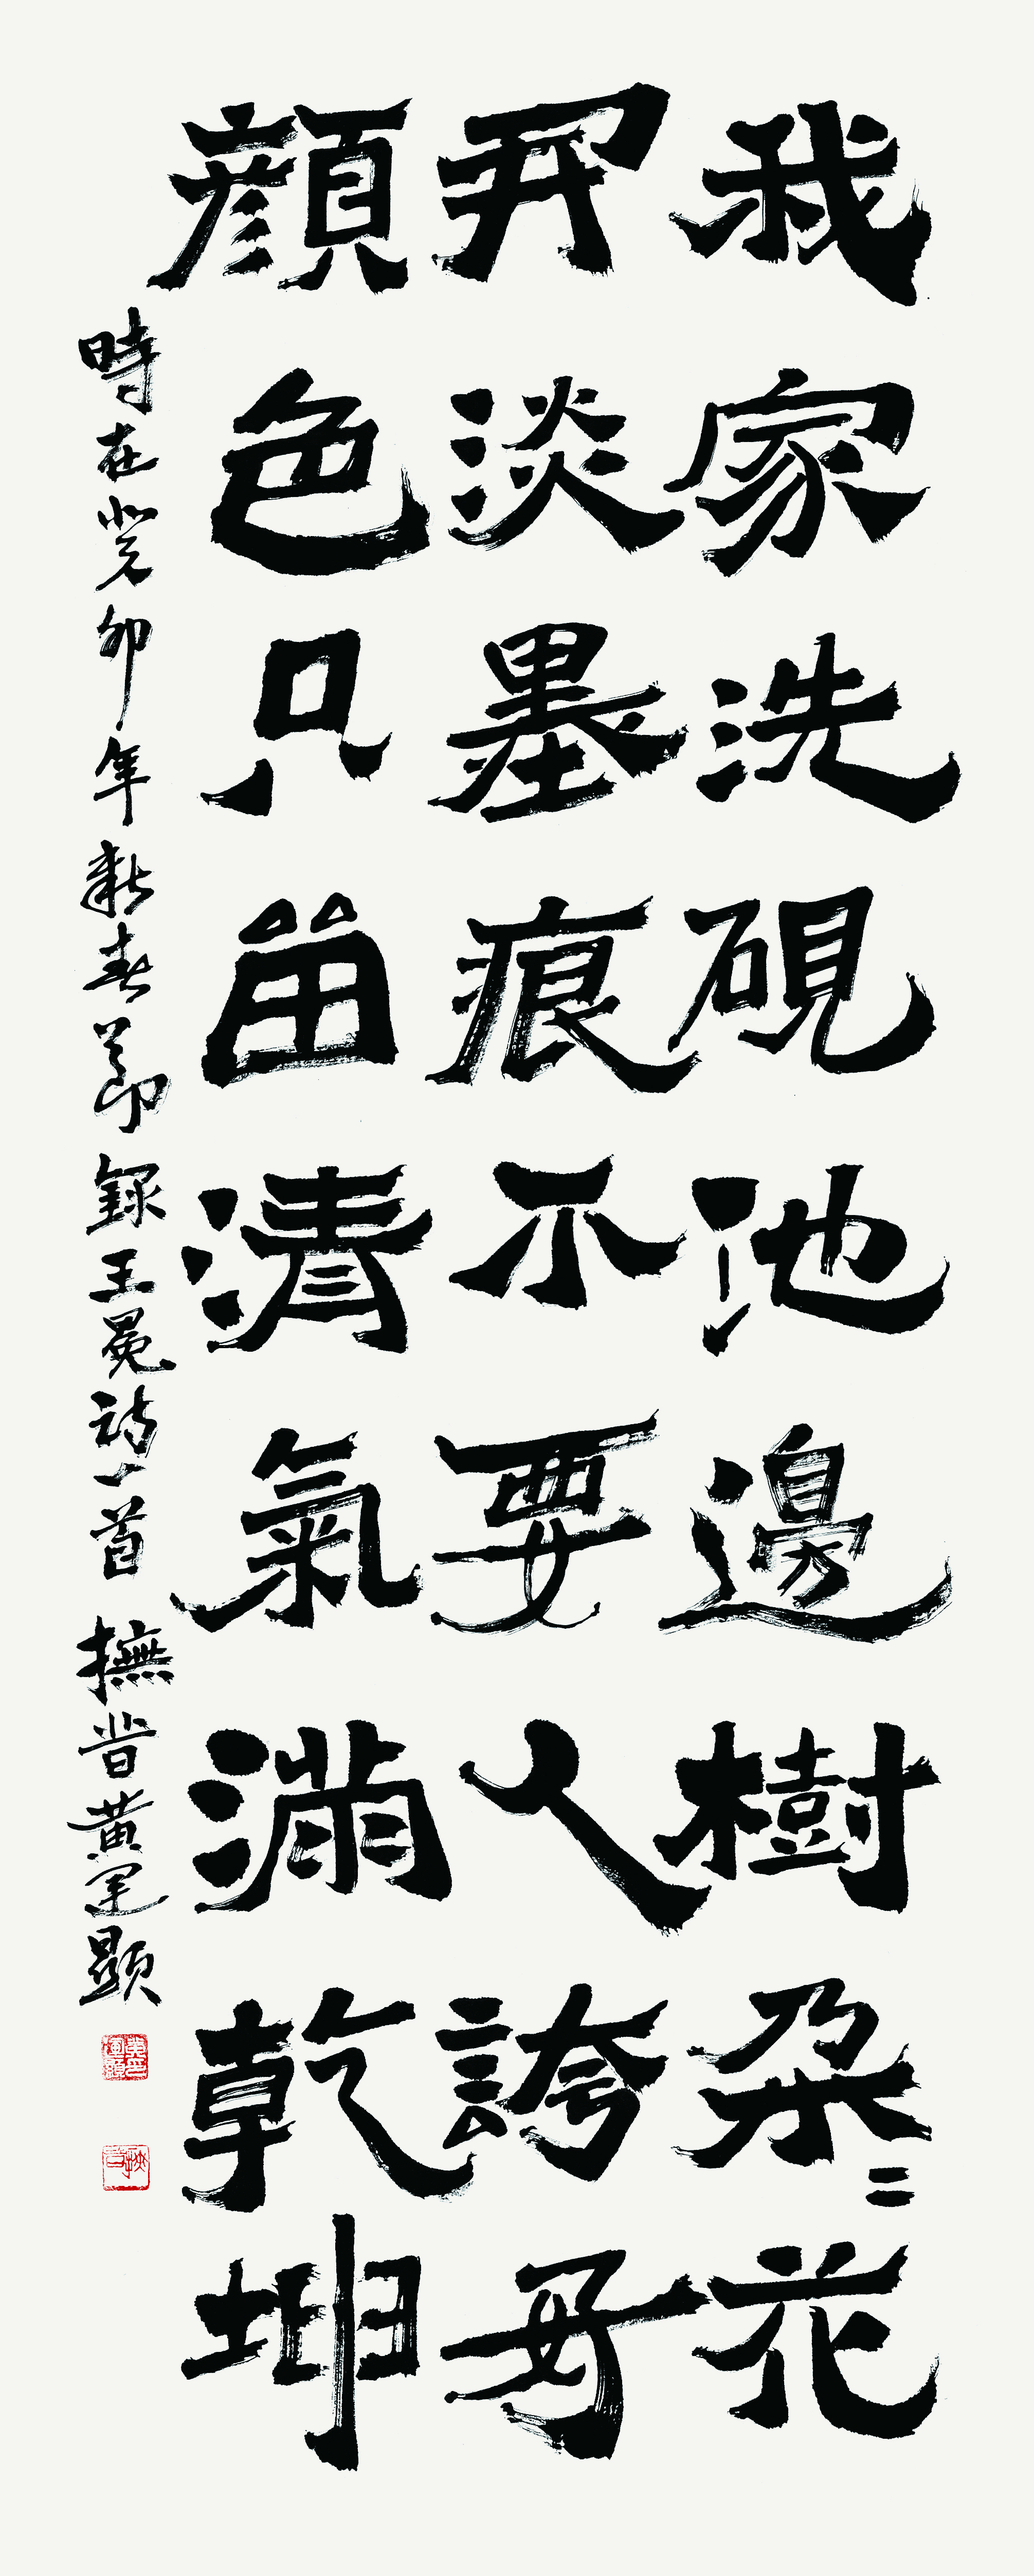 我家洗硯池邊樹朵々花
开淡墨痕不要人誇好
顏色只留清氣滿乾坤
時在癸卯年新春節錄王冕詩一首 撫昔黃運顯